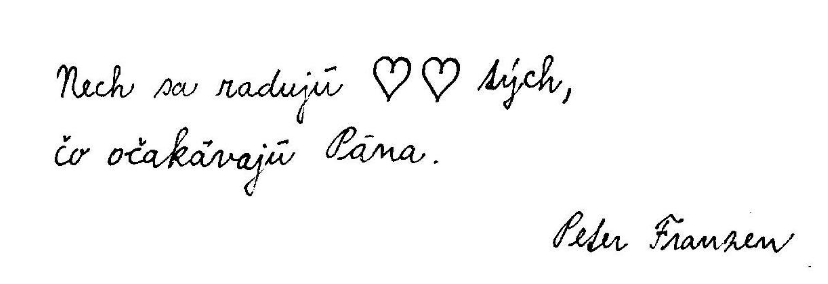 Nech sa radujú ♡♡ tých,
čo očakávajú Pána.
Peter Franzen